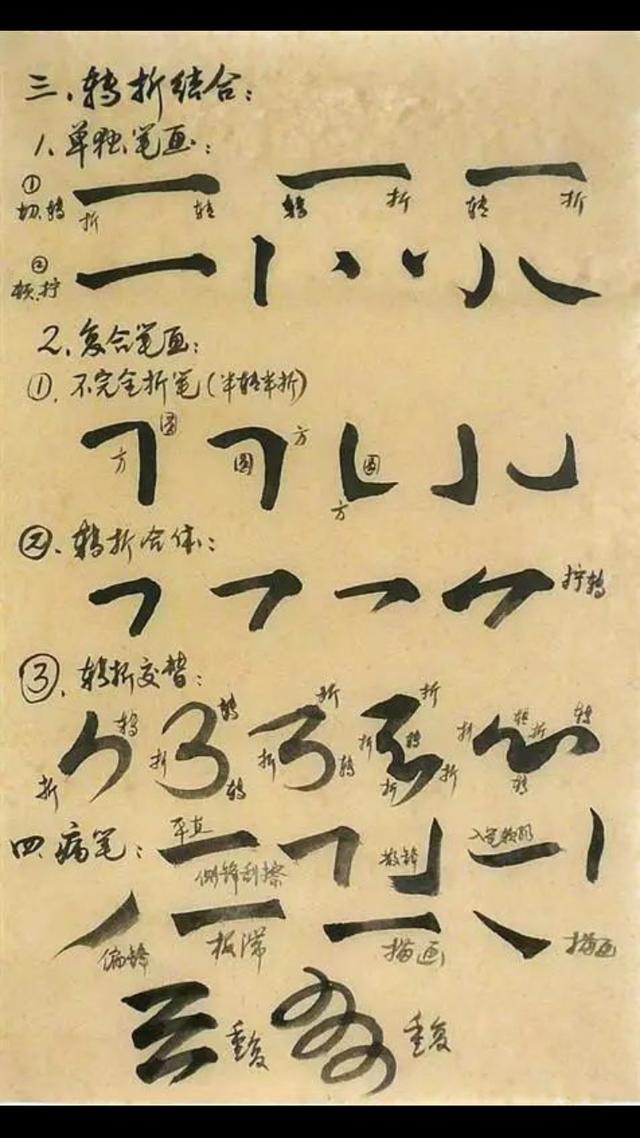 三、转折结合：
1、单独笔画：
① 切、转 折 转 转 折 转 折
② 顿、拧
2、复合笔画：
①、不完全折笔（半转半折）
方 圆 圆 方 圆 方
②、转折合体：
拧转
③、转折交替：
折 转 折 转 转 折 折 转 折 折 转 折 折 折 转 折 转 转
四、病笔：平直 侧锋刮擦 散锋
偏锋 板滞 描画 描画
重复 重复